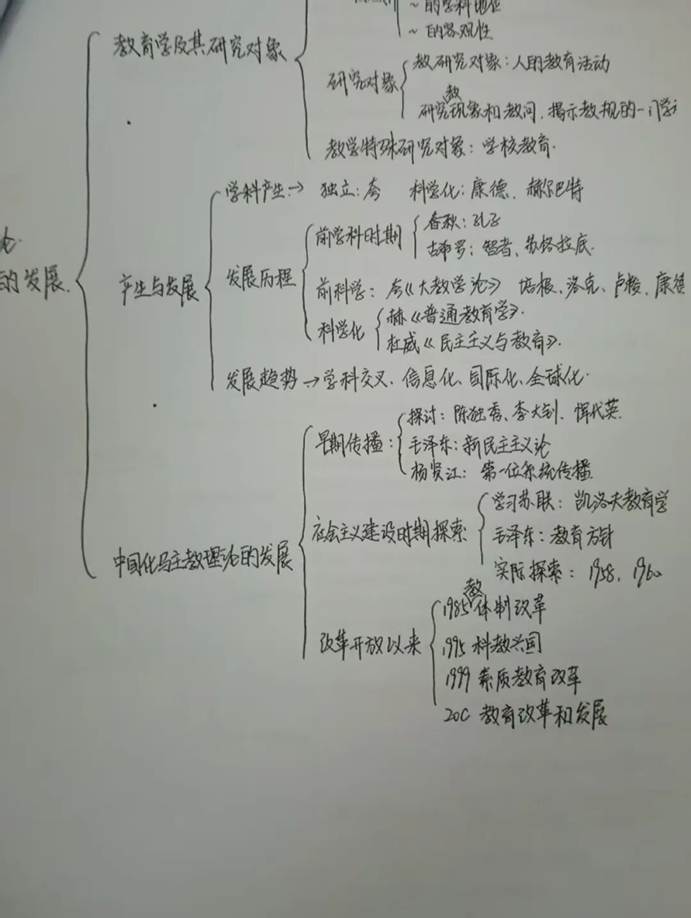 ~的学科地位
~的客观性
教育学及其研究对象
研究对象
教研究对象：人的教育活动
教
研究现象和教问，揭示教规的一门学
教学特殊研究对象：学校教育.
的发展.
产生与发展
学科产生→ 独立：夸 科学化：康德、赫尔巴特
发展历程
前学科时期
春秋：孔子
古希罗：智者、苏格拉底.
前科学：夸《大教学论》 培根、洛克、卢梭、康德
科学化
赫《普通教育学》.
杜威《民主主义与教育》.
发展趋势→学科交叉、信息化、国际化、全球化.
中国化马主教理论的发展
早期传播：
探讨：陈独秀、李大钊、恽代英.
毛泽东：新民主主义论
杨贤江：第一位系统传播.
社会主义建设时期探索
学习苏联：凯洛夫教育学
毛泽东：教育方针
实际探索：1958、1960
改革开放以来
教
1985体制改革
1995 科教兴国
1999 素质教育改革
20C 教育改革和发展